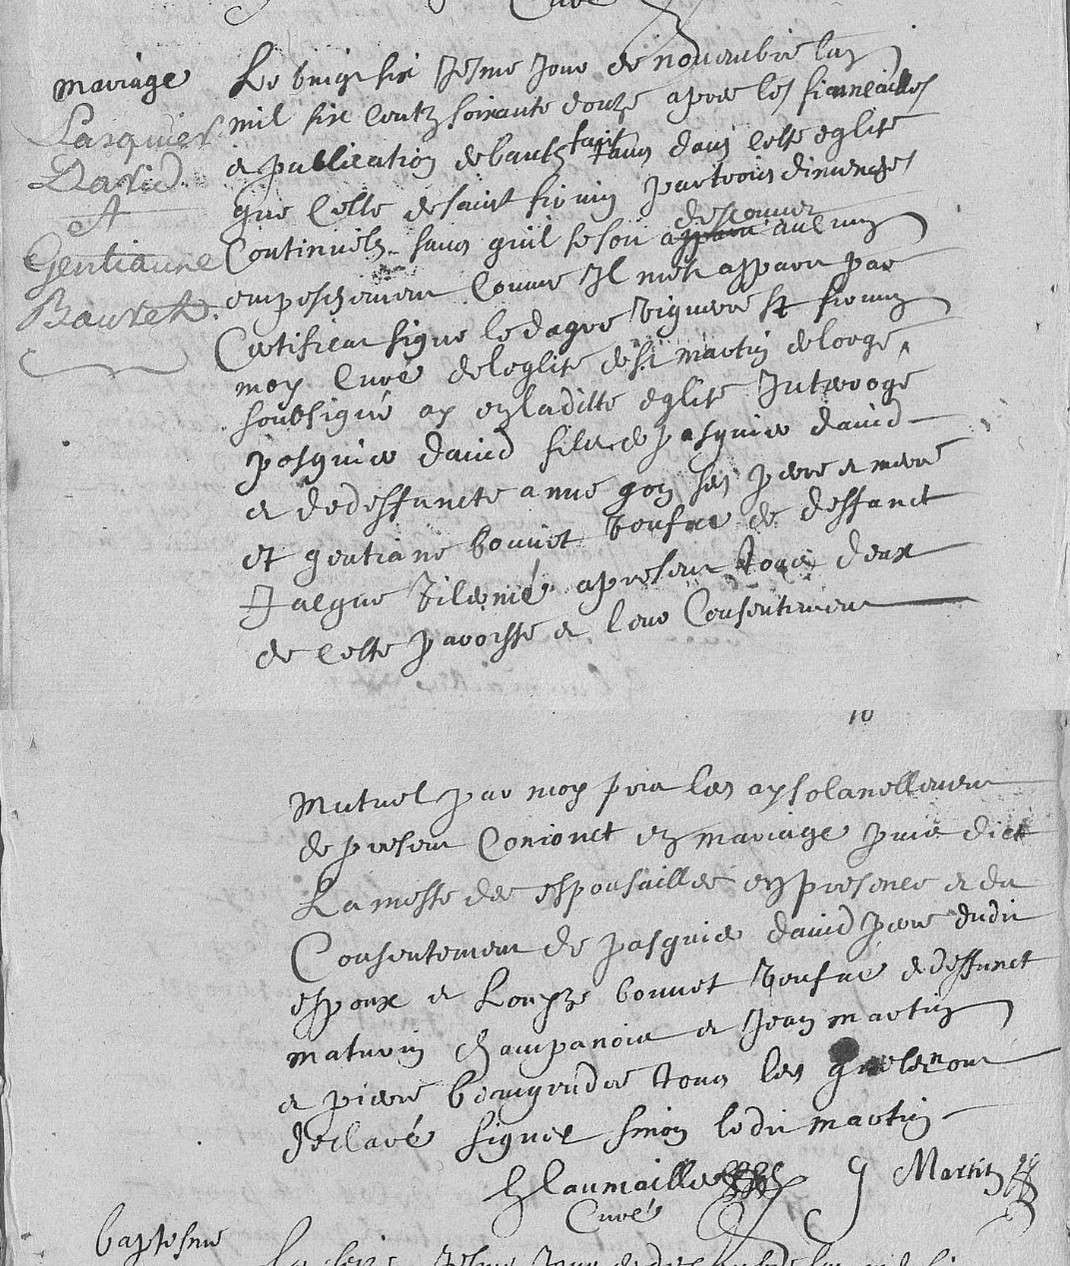 Curé
mariage
Pasquier
David
et
Gentianne
Bauvet
Le vingt six iesme Jour de novembre lan
mil six centz soixante douze apres les fiancailles
et publication de bantz fait tant dans ceste eglise
que celle de saint firmin par trois dimenches
continuels sans quil se soit descouvert aulcun
empeschement comme Il mest apparu par
Certificat signe vigneres st firmin
moy Curé de leglise de st martin de
soubsigné ay en laditte eglise Interogé
pasquier david filz de pasquier david
et de deffuncte anne ses pere et mere
et gentiane bonnet veufve de deffunct
Jacque apresent tous deux
de ceste paroisse et leur Consentement
10
Mutuel par moy pris les ay solanellement
de present Conionct en mariage puis dict
La messe des espousailles en presence et du
Consentement de pasquier david pere dudit
espoux et Louyze bonnet veufve de deffunct
maturin champanois et Jean martin
et piere tous les quels nont
declaré signer sinon ledit martin
Laumaillie J Martin
Curé
baptesme